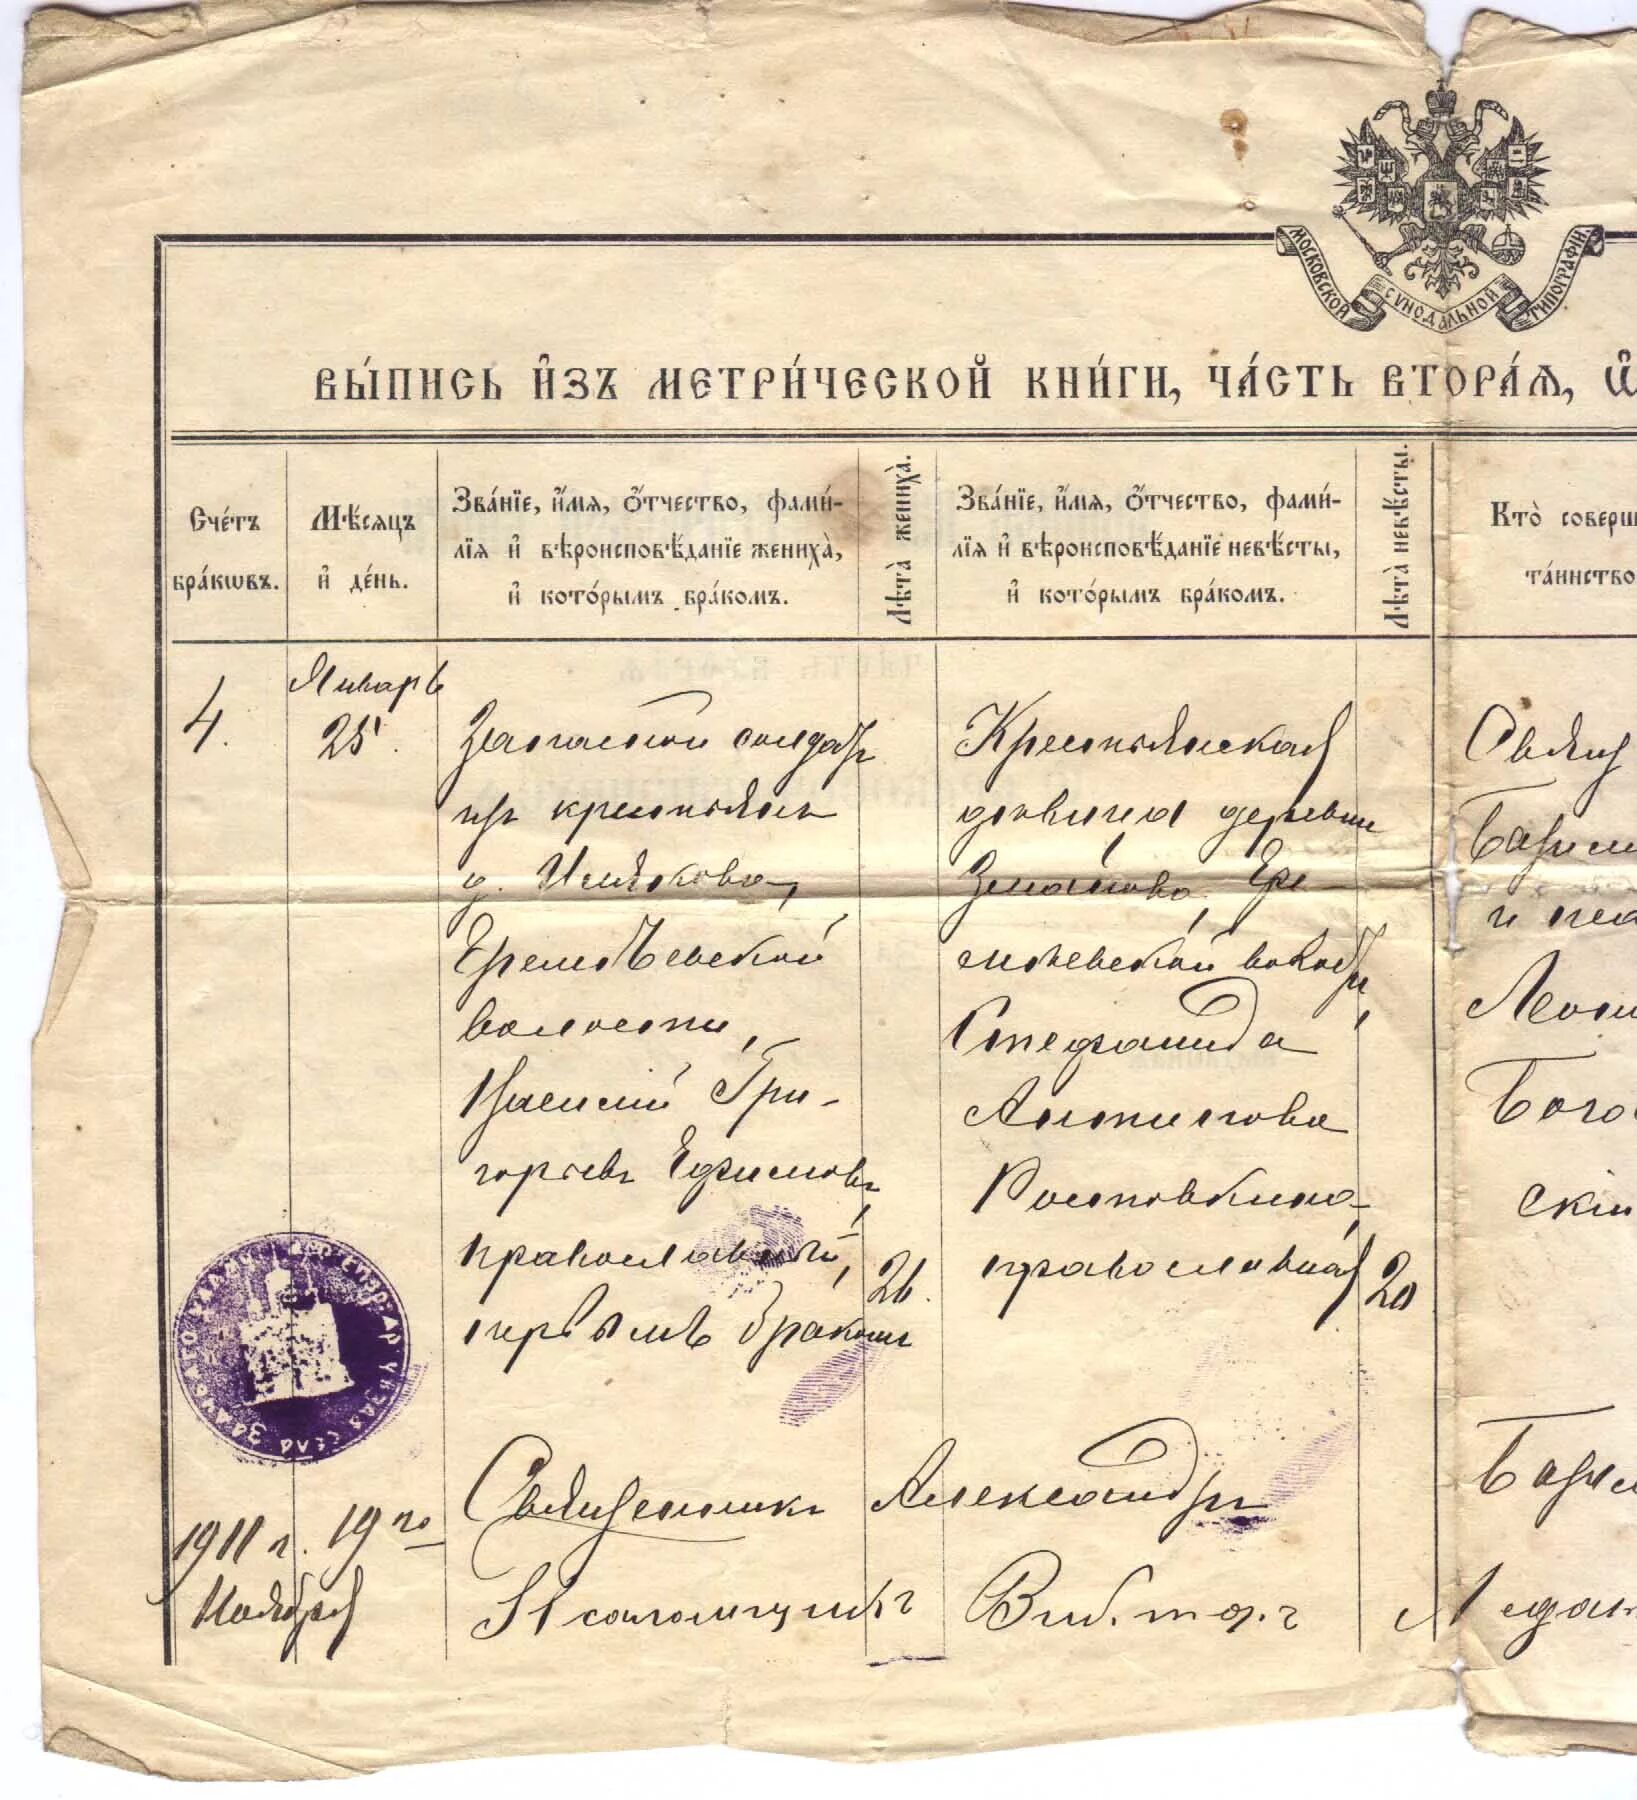 МОСКОВСКОЙ СѴНОДАЛЬНОЙ ТИПОГРАФІИ.
ВЫ́ПИСЬ И҆ЗЪ МЕТРИ́ЧЕСКОЙ КНИ́ГИ, ЧА́СТЬ ВТОРА́Ѧ, Ѿ
Сче́тъ бра́кѡвъ.
Мѣ́сѧцъ и҆ де́нь.
Зва́нїе, и҆́мѧ, ѻ҆́тчество, фами́-
лїѧ и҆ вѣроисповѣ́данїе жениха̀,
и҆ кото́рымъ бра́комъ.
Лѣта̀ жениха̀.
Зва́нїе, и҆́мѧ, ѻ҆́тчество, фами́-
лїѧ и҆ вѣроисповѣ́данїе невѣ́сты,
и҆ кото́рымъ бра́комъ.
Лѣта̀ невѣ́сты.
Кто̀ соверш
та́инство
4.
Январь
25.
Запасной солдатъ
изъ крестьянъ
д.
Еремѣевской
волости,
Василій Гри-
горьевъ Ефимовъ,
православный,
первымъ бракомъ
26.
Крестьянская
дѣвица деревни
Ере-
мѣевской волости,
Стефанида
Антипова
православная
20
Свящ
и пса
Леон
Бого
скій
1911 г. 19го
Ноября
Священникъ Александръ
Псаломщикъ